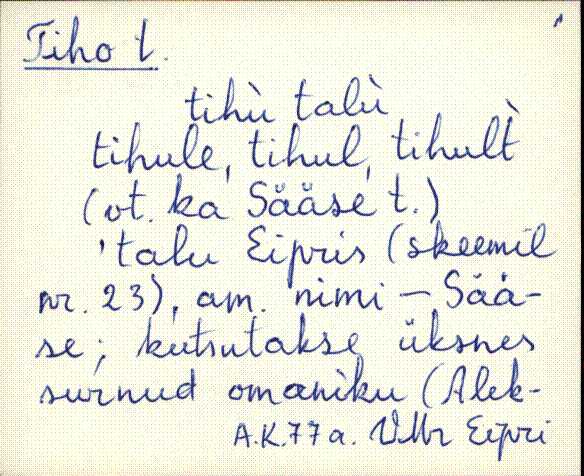 Tiho t.
tihù talù
tihule, tihul, tihult̀
(vt. ka Sääse t.)
'talu Eipris (skeemil
nr. 23), am. nimi – Sää-
se; kutsutakse üksnes
surnud omaniku (Alek-
A.K.77a. VMr Eipri